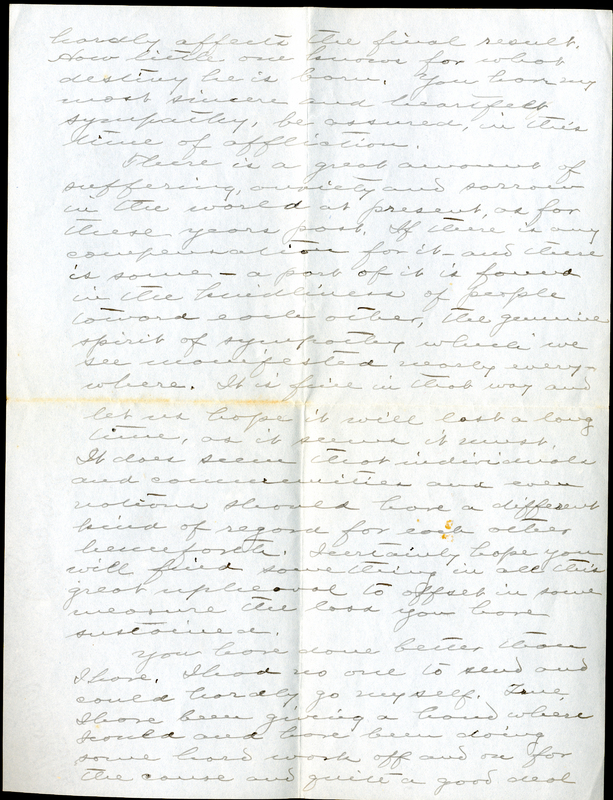 hardly affects the final result.
How little one knows for what
destiny he is born. You have my
most sincere and heartfelt
sympathy, be assured, in this
time of affliction.
There is a great amount of
suffering, anxiety and sorrow
in the world at present, as for
these years past. If there is any
compensation for it - and there
is some - a part of it is found
in the kindliness of people
toward each other, the genuine
spirit of sympathy which we
see manifested nearly every-
where. It is fine in that way and
let us hope it will last a long
time, as it seems it must.
It does seem that individuals
and communities and even
nations should have a different
kind of regard for each other
henceforth. I certainly hope you
will find something in all this
great upheaval to offset in some
measure the loss you have
sustained.
You have done better than
I have. I had no one to send and
could hardly go myself. True,
I have been giving a hand where
I could and have been doing
some hard work off and on for
the cause and quite a good deal